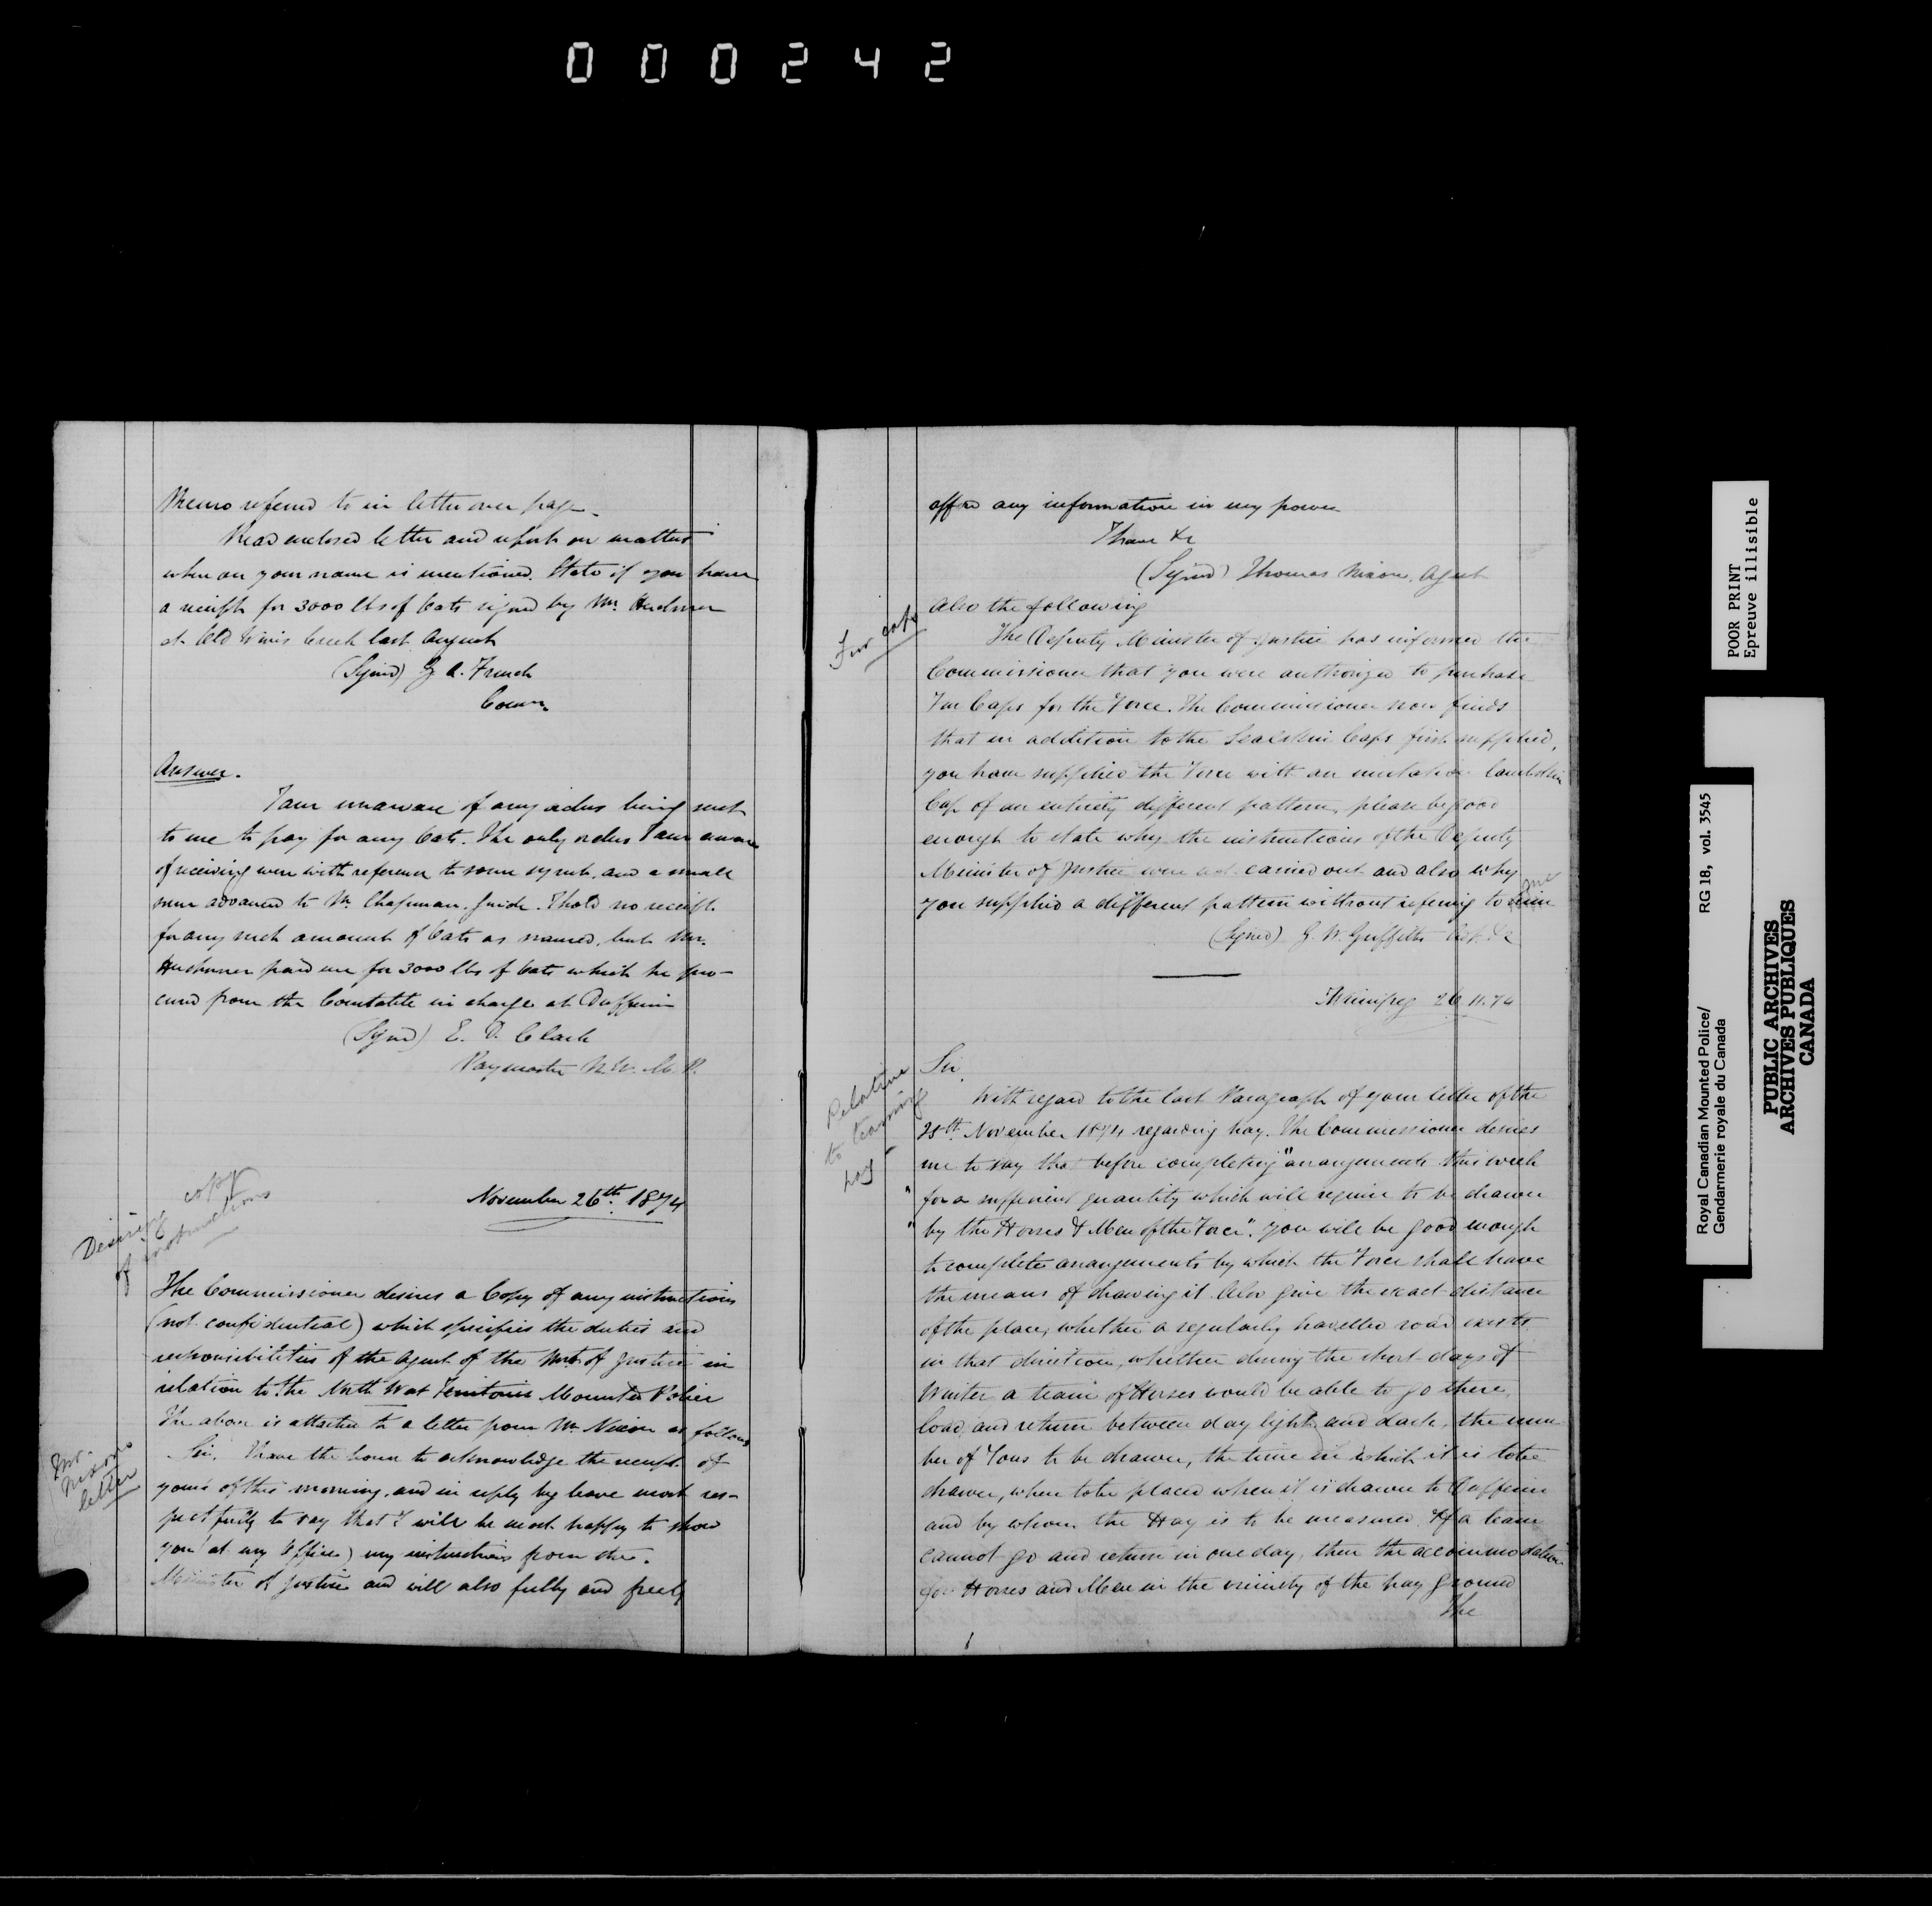 000242
Memo referred to in letter over page.
Read enclosed letter and report on matters
whereon your name is mentioned. State if you have
a receipt for 3000 lbs of Oats signed by Mr.
at Old Wives Creek last August
(Signd) G. A. French
Comr.
Answer.
I am unaware of any orders being sent
to me to pay for any Oats. The only orders I am aware
of receiving were with reference to some and a small
sum advanced to Mr. Chapman. Guide. I hold no receipt
for any such amount of Oats as named, but Mr.
paid me for 3000 lbs of Oats which he pro-
cured from the Constable in charge at Dufferin
(Signd) E. D. Clark
Paymaster N. W. M. P.
Desiring copy
of instructions
November 26th. 1874
The Commissioner desires a Copy of any instructions
(not confidential) which specifies the duties and
responsibilities of the Agent of the Mtr of Justice in
relation to the North West Territories Mounted Police
The above is attached to a letter from Mr. Nixon as follows
Mr.
Nixons
letter
Sir, I have the honor to acknowledge the receipt of
yours of this morning, and in reply beg leave most res-
pectfully to say that I will be most happy to show
you (at my Office) my instructions from the
Minister of Justice and will also fully and freely
afford any information in my power
I have &c
(Signd) Thomas Nixon, Agent
Fur caps
Also the following
The Deputy Minister of Justice has informed the
Commissioner that you were authorized to purchase
Fur Caps for the Force. The Commissioner now finds
that in addition to the Sealskin Caps first supplied,
you have supplied the Force with an imitation lambskin
Cap of an entirely different pattern, please be good
enough to state why the instructions of the Deputy
Minister of Justice were not carried out and also why
you supplied a different pattern without refering to him
me
(Signed) G. W. Griffiths
Winnipeg 26.11.74
Relative
to teaming
hay
Sir,
With regard to the last Paragraph of your letter of the
25th. November 1874 regarding hay. The Commissioner desires
me to say that before completing "arrangements this week
"for a sufficient quantity which will require to be drawn
"by the Horses & Men of the Force". you will be good enough
to complete arrangements by which the Force shall have
the means of drawing it. Also give the exact distance
of the place, whether a regularly travelled road exists
in that direction, whether during the short days of
Winter a team of Horses would be able to go there,
load, and return between day light and dark, the num-
ber of Tons to be drawn, the time in which it is to be
drawn, where to be placed when it is drawn to Dufferin
and by whom the Hay is to be measured. If a team
cannot go and return in one day, then the accommodation
for Horses and Men in the vicinity of the hay ground
The
POOR PRINT
Epreuve illisible
RG 18, vol. 3545
Royal Canadian Mounted Police/
Gendarmerie royale du Canada
PUBLIC ARCHIVES
ARCHIVES PUBLIQUES
CANADA